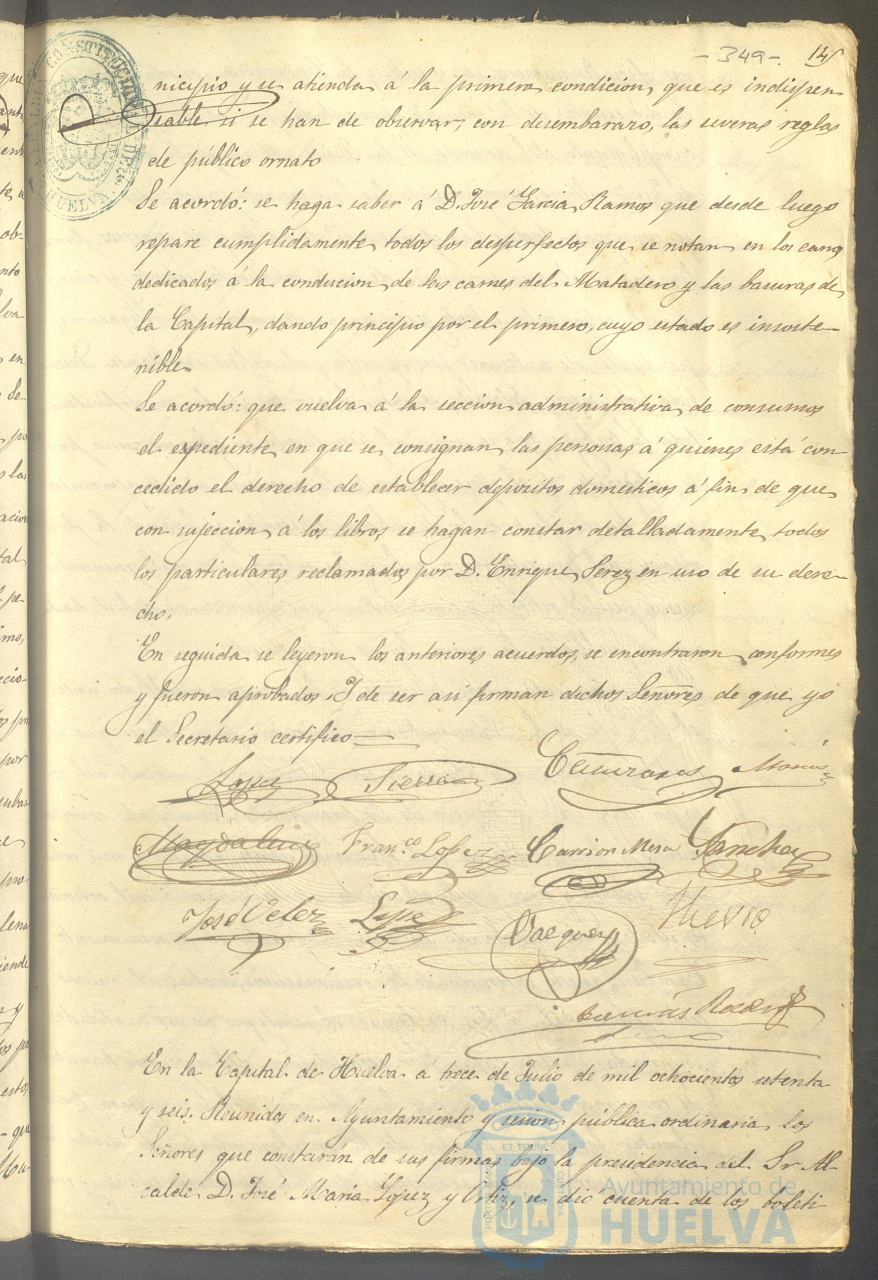 - 349 -. 145
nicipio y se atienda á la primera condicion, que es indispen-
sable si se han de observar, con desembarazo, las severas reglas
de público ornato
Se acordó: se haga saber á D. José Garcia Ramos que desde luego
repare cumplidamente todos los desperfectos que se notan en los carros
dedicados á la conducion de las carnes del Matadero y las basuras de
la Capital, dando principio por el primero, cuyo estado es insoste-
nible.
Se acordó: que vuelva á la seccion administrativa de consumos
el espediente en que se consignan las personas á quienes está con
cedido el derecho de establecer depositos domesticos á fin de que
con sujeccion á los libros se hagan constar detalladamente todos
los particulares reclamados por D. Enrique Perez en uso de su dere-
cho.
En seguida se leyeron los anteriores acuerdos, se encontraron conformes
y fueron aprobados. I de ser asi firman dichos Señores de que yo
el Secretario certifico=
Lopez Sierra
Fran.co Lopez Carrion Mesa Sanchez
José Velez Lopez Vazquez
En la Capital de Huelva á trece de Julio de mil ochocientos setenta
y seis. Reunidos en Ayuntamiento y sesion pública ordinaria, los
Señores que constaran de sus firmas bajo la presidencia del Sr. Al
calde D. José Maria Lopez y Ortiz, se dió cuenta de los boleti
HUELVA
Ayuntamiento de
HUELVA